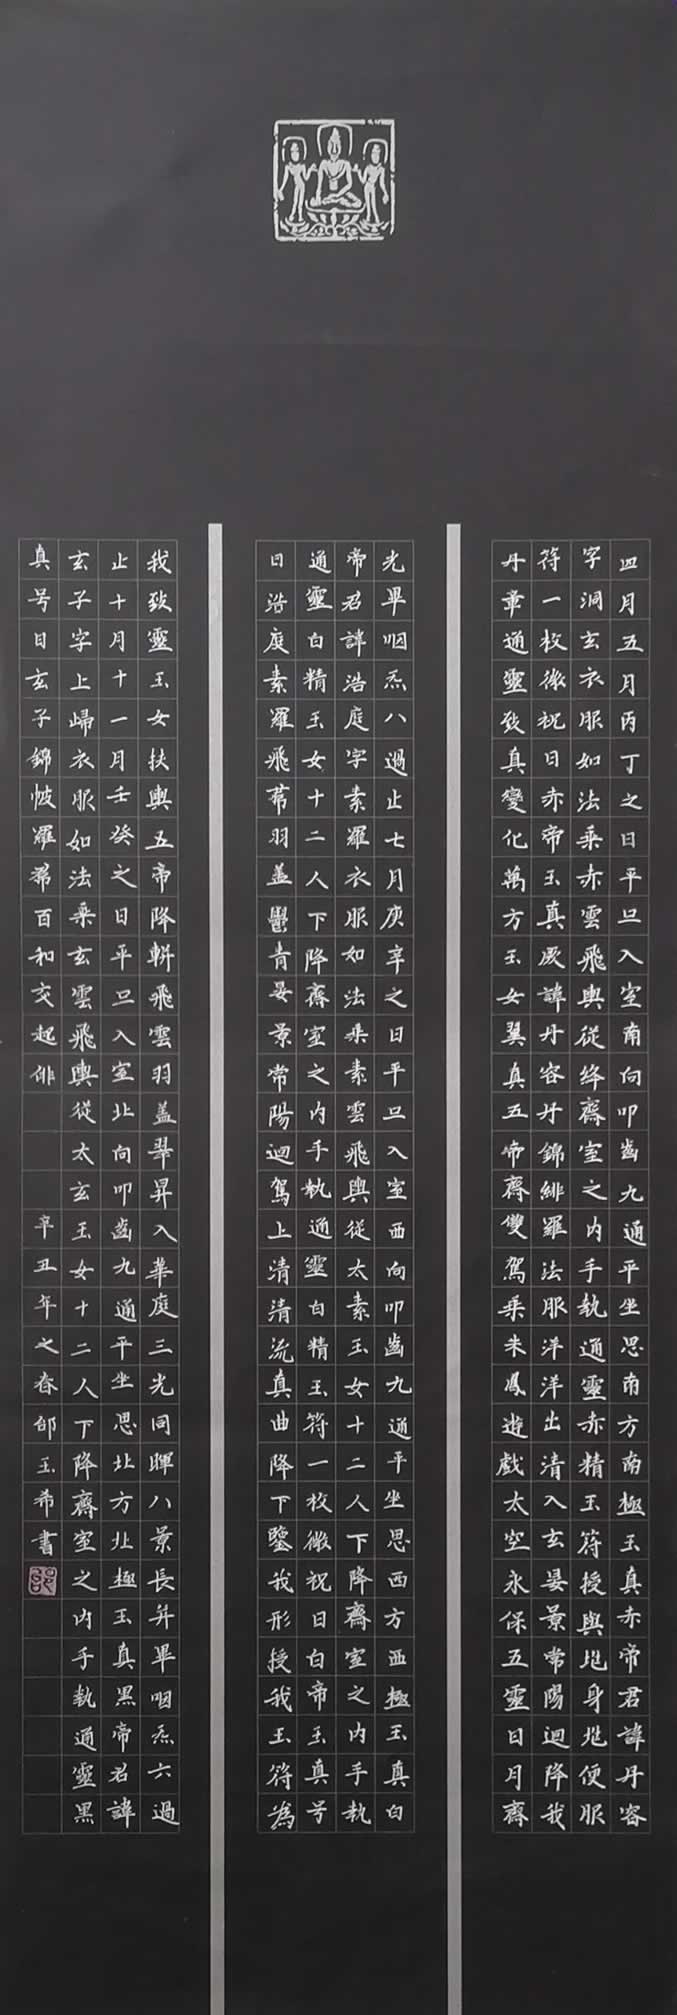 四月五月丙丁之日平旦入室南向叩齒九通平坐思南方南極玉真赤帝君諱丹容
字洞玄衣服如法乗赤雲飛輿從絳齋室之内手執通靈赤精玉符授與地身地便服
符一枚微祝曰赤帝玉真厥諱丹容丹錦緋羅法服洋洋出清入玄晏景常陽迴降我
丹章通靈致真變化萬方玉女翼真五帝齋雙駕乗朱鳳遊戲太空永保五靈日月齋
光畢咽炁八過止七月庚辛之日平旦入室西向叩齒九通平坐思西方西極玉真白
帝君諱浩庭字素羅衣服如法乗素雲飛輿從太素玉女十二人下降齋室之内手執
通靈白精玉女十二人下降齋室之内手執通靈白精玉符一枚微祝曰白帝玉真号
曰浩庭素羅飛帬羽蓋鬱青晏景常陽迴駕上清清流真曲降下鑒我形授我玉符為
我致靈玉女扶輿五帝降軿飛雲羽蓋翠昇入華庭三光同暉八景長并畢咽炁六過
止十月十一月壬癸之日平旦入室北向叩齒九通平坐思北方北極玉真黑帝君諱
玄子字上歸衣服如法乗玄雲飛輿從太玄玉女十二人下降齋室之内手執通靈黑
真号曰玄子錦帔羅帬百和交起俳
辛丑年之春邰玉希書